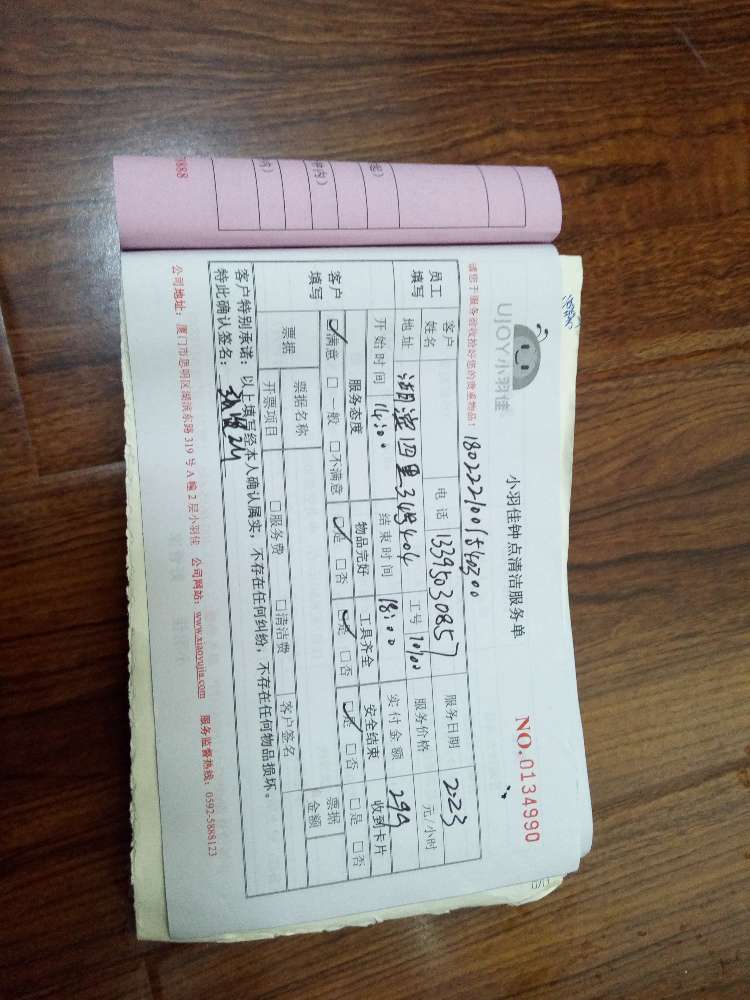 UJOY小羽佳
小羽佳钟点清洁服务单
NO.0134990
请您于服务前收拾好您的贵重物品!
员工填写
客户姓名
电话 13395030857
服务日期 2.23
地址 湖滨四里34号404
工号 10100
服务价格 元/小时
开始时间 14:00
结束时间 18:00
实付金额 299
客户填写
服务态度
物品完好
工具齐全
安全结束
收到卡片
☑满意 □一般 □不满意
☑是 □否
☑是 □否
☑是 □否
□是 □否
票据
票据名称
票据金额
开票项目
□服务费
□清洁费
客户签名
客户特别承诺:以上填写经本人确认属实,不存在任何纠纷,不存在任何物品损坏。
特此确认签名:
公司地址:厦门市思明区湖滨东路 319 号 A 幢 2 层小羽佳 公司网站:www.xiaoyujia.com 服务监督热线:0592-5888123